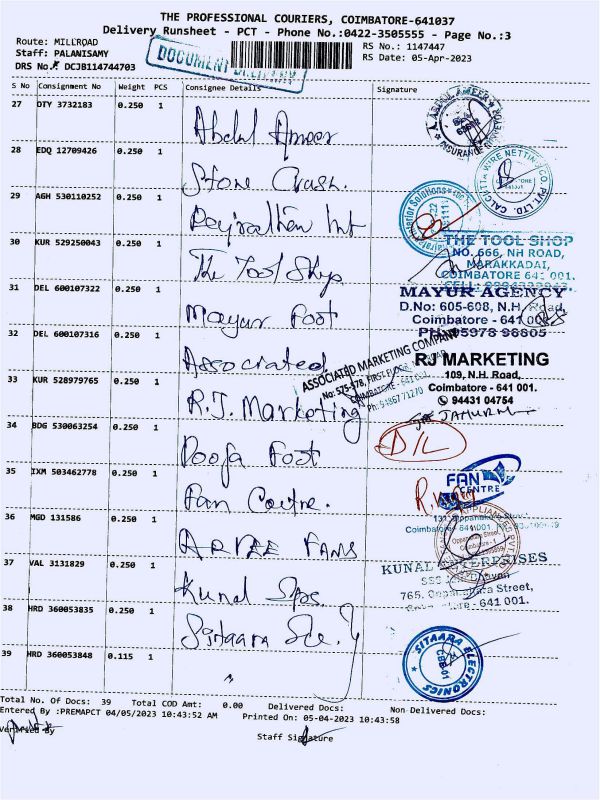 THE PROFESSIONAL COURIERS, COIMBATORE-641037
Delivery Runsheet - PCT - Phone No.:0422-3505555 - Page No.:3
Route: MILLROAD
RS No.: 1147447
Staff: PALANISAMY
RS Date: 05-Apr-2023
DRS No.: DCJB114744703
DOCUMENT
S No Consignment No Weight PCS Consignee Details Signature
27 DTY 3732183 0.250 1
Abdul Ameer
INSURANCE SURVEYOR
28 EDQ 12709426 0.250 1
Stone Crash.
CALCUTTA WIRE NETTING CO. PVT. LTD.
29 AGH 530110252 0.250 1
Int
30 KUR 529250043 0.250 1
The Tool Shop
THE TOOL SHOP
NO. 666, NH ROAD,
MARAKKADAI,
COIMBATORE 641 001.
31 DEL 600107322 0.250 1
Mayur Foot
MAYUR AGENCY
D.No: 605-608, N.H. Road,
Coimbatore - 641 001
32 DEL 600107316 0.250 1
Associated
ASSOCIATED MARKETING COMPANY
No: 575-578, FIRST FLOOR,
33 KUR 528979765 0.250 1
R.J. Marketing
RJ MARKETING
109, N.H. Road,
Coimbatore - 641 001.
94431 04754
34 BDG 530063254 0.250 1
Pooja Foot
D/L
35 IXM 503462778 0.250 1
Fan Centre.
FAN CENTRE
36 MGD 131586 0.250 1
ARVEE FANS
37 VAL 3131829 0.250 1
Kunal
KUNAL ENTERPRISES
765, Oppanakara Street,
Coimbatore - 641 001.
38 HRD 360053835 0.250 1
Sitaara
SITAARA ELECTRONICS
CBE-01
39 HRD 360053848 0.115 1
"
Total No. Of Docs: 39 Total COD Amt: 0.00 Delivered Docs: Non Delivered Docs:
Entered By :PREMAPCT 04/05/2023 10:43:52 AM Printed On: 05-04-2023 10:43:58
Verified By
Staff Signature